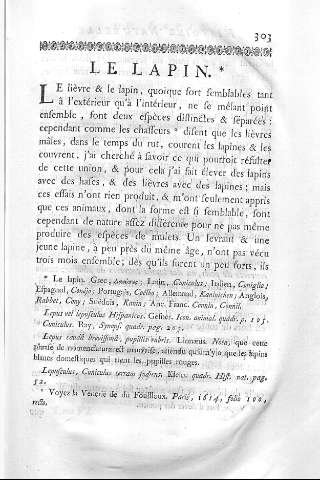 303
LE LAPIN. *
LE lièvre & le lapin, quoique fort semblables tant
à l'extérieur qu'à l'intérieur, ne se mêlant point
ensemble, font deux espèces distinctes & séparées:
cependant comme les chasseurs * disent que les lièvres
mâles, dans le temps du rut, courent les lapines & les
couvrent, j'ai cherché à savoir ce qui pourroit résulter
de cette union, & pour cela j'ai fait élever des lapins
avec des hases, & des lièvres avec des lapines; mais
ces essais n'ont rien produit, & m'ont seulement appris
que ces animaux, dont la forme est si semblable, sont
cependant de nature assez différente pour ne pas même
produire des espèces de mulets. Un levraut & une
jeune lapine, à peu près du même âge, n'ont pas vécu
trois mois ensemble; dès qu'ils furent un peu forts, ils
* Le lapin. Grec, Latin, Cuniculus; Italien, Coniglio;
Espagnol, Conejo; Portugais, Coelho; Allemand, Kaninichen; Anglois,
Rabbet, Cony; Suédois, Kanin; Anc. Franc. Connin, Connil.
Lepus vel lepusculus Hispanicus. Gesner. Icon. animal. quadr. p. 105.
Cuniculus. Ray, Synops. quadr. pag. 205.
Lepus caudâ brevissimâ, pupillis rubris. Linnæus. Nota, que cette
phrase de nomenclature est attendu qu'il n'y a que les lapins
blancs domestiques qui aient les pupilles rouges.
Lepusculus, Cuniculus terram fodiens. Klein, quadr. Hist. nat. pag.
52.
* Voyez la Vénerie de du Fouilloux. Paris, 1614, folio 100,
recto.